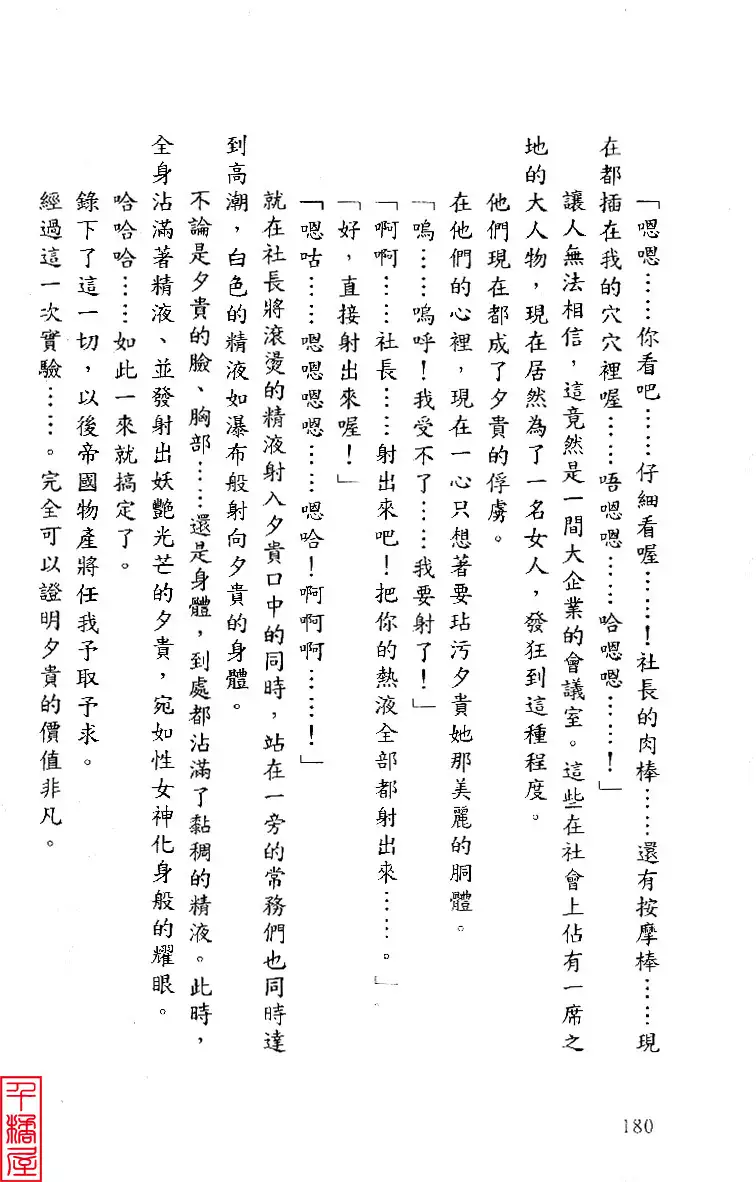 「嗯嗯……你看吧……仔細看喔……！社長的肉棒……還有按摩棒……現
在都插在我的穴穴裡喔……唔嗯嗯……哈嗯嗯……！」
讓人無法相信，這竟然是一間大企業的會議室。這些在社會上佔有一席之
地的大人物，現在居然為了一名女人，發狂到這種程度。
他們現在都成了夕貴的俘虜。
在他們的心裡，現在一心只想著要玷污夕貴她那美麗的胴體。
「嗚……嗚呼！我受不了……我要射了！」
「啊啊……社長……射出來吧！把你的熱液全部都射出來……。」
「好，直接射出來喔！」
「嗯咕……嗯嗯嗯嗯……嗯哈！啊啊啊……！」
就在社長將滾燙的精液射入夕貴口中的同時，站在一旁的常務們也同時達
到高潮，白色的精液如瀑布般射向夕貴的身體。
不論是夕貴的臉、胸部……還是身體，到處都沾滿了黏稠的精液。此時，
全身沾滿著精液、並發射出妖艷光芒的夕貴，宛如性女神化身般的耀眼。
哈哈哈……如此一來就搞定了。
錄下了這一切，以後帝國物產將任我予取予求。
經過這一次實驗……。完全可以證明夕貴的價值非凡。
180
千橘屋